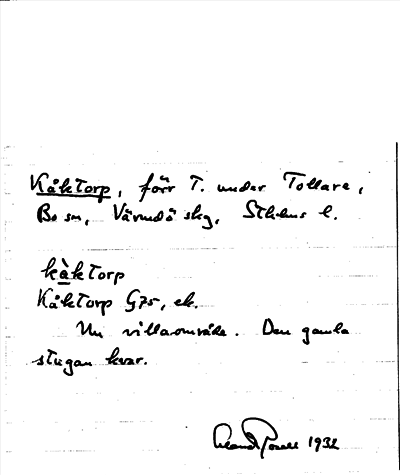 Kåktorp, förr T. under Tollare,
Bo sn, Värmdö skg, Sthlms l.
kåktorp
Kåktorp G75, ek.
Nu villaområde. Den gamla
stugan kvar.
1932